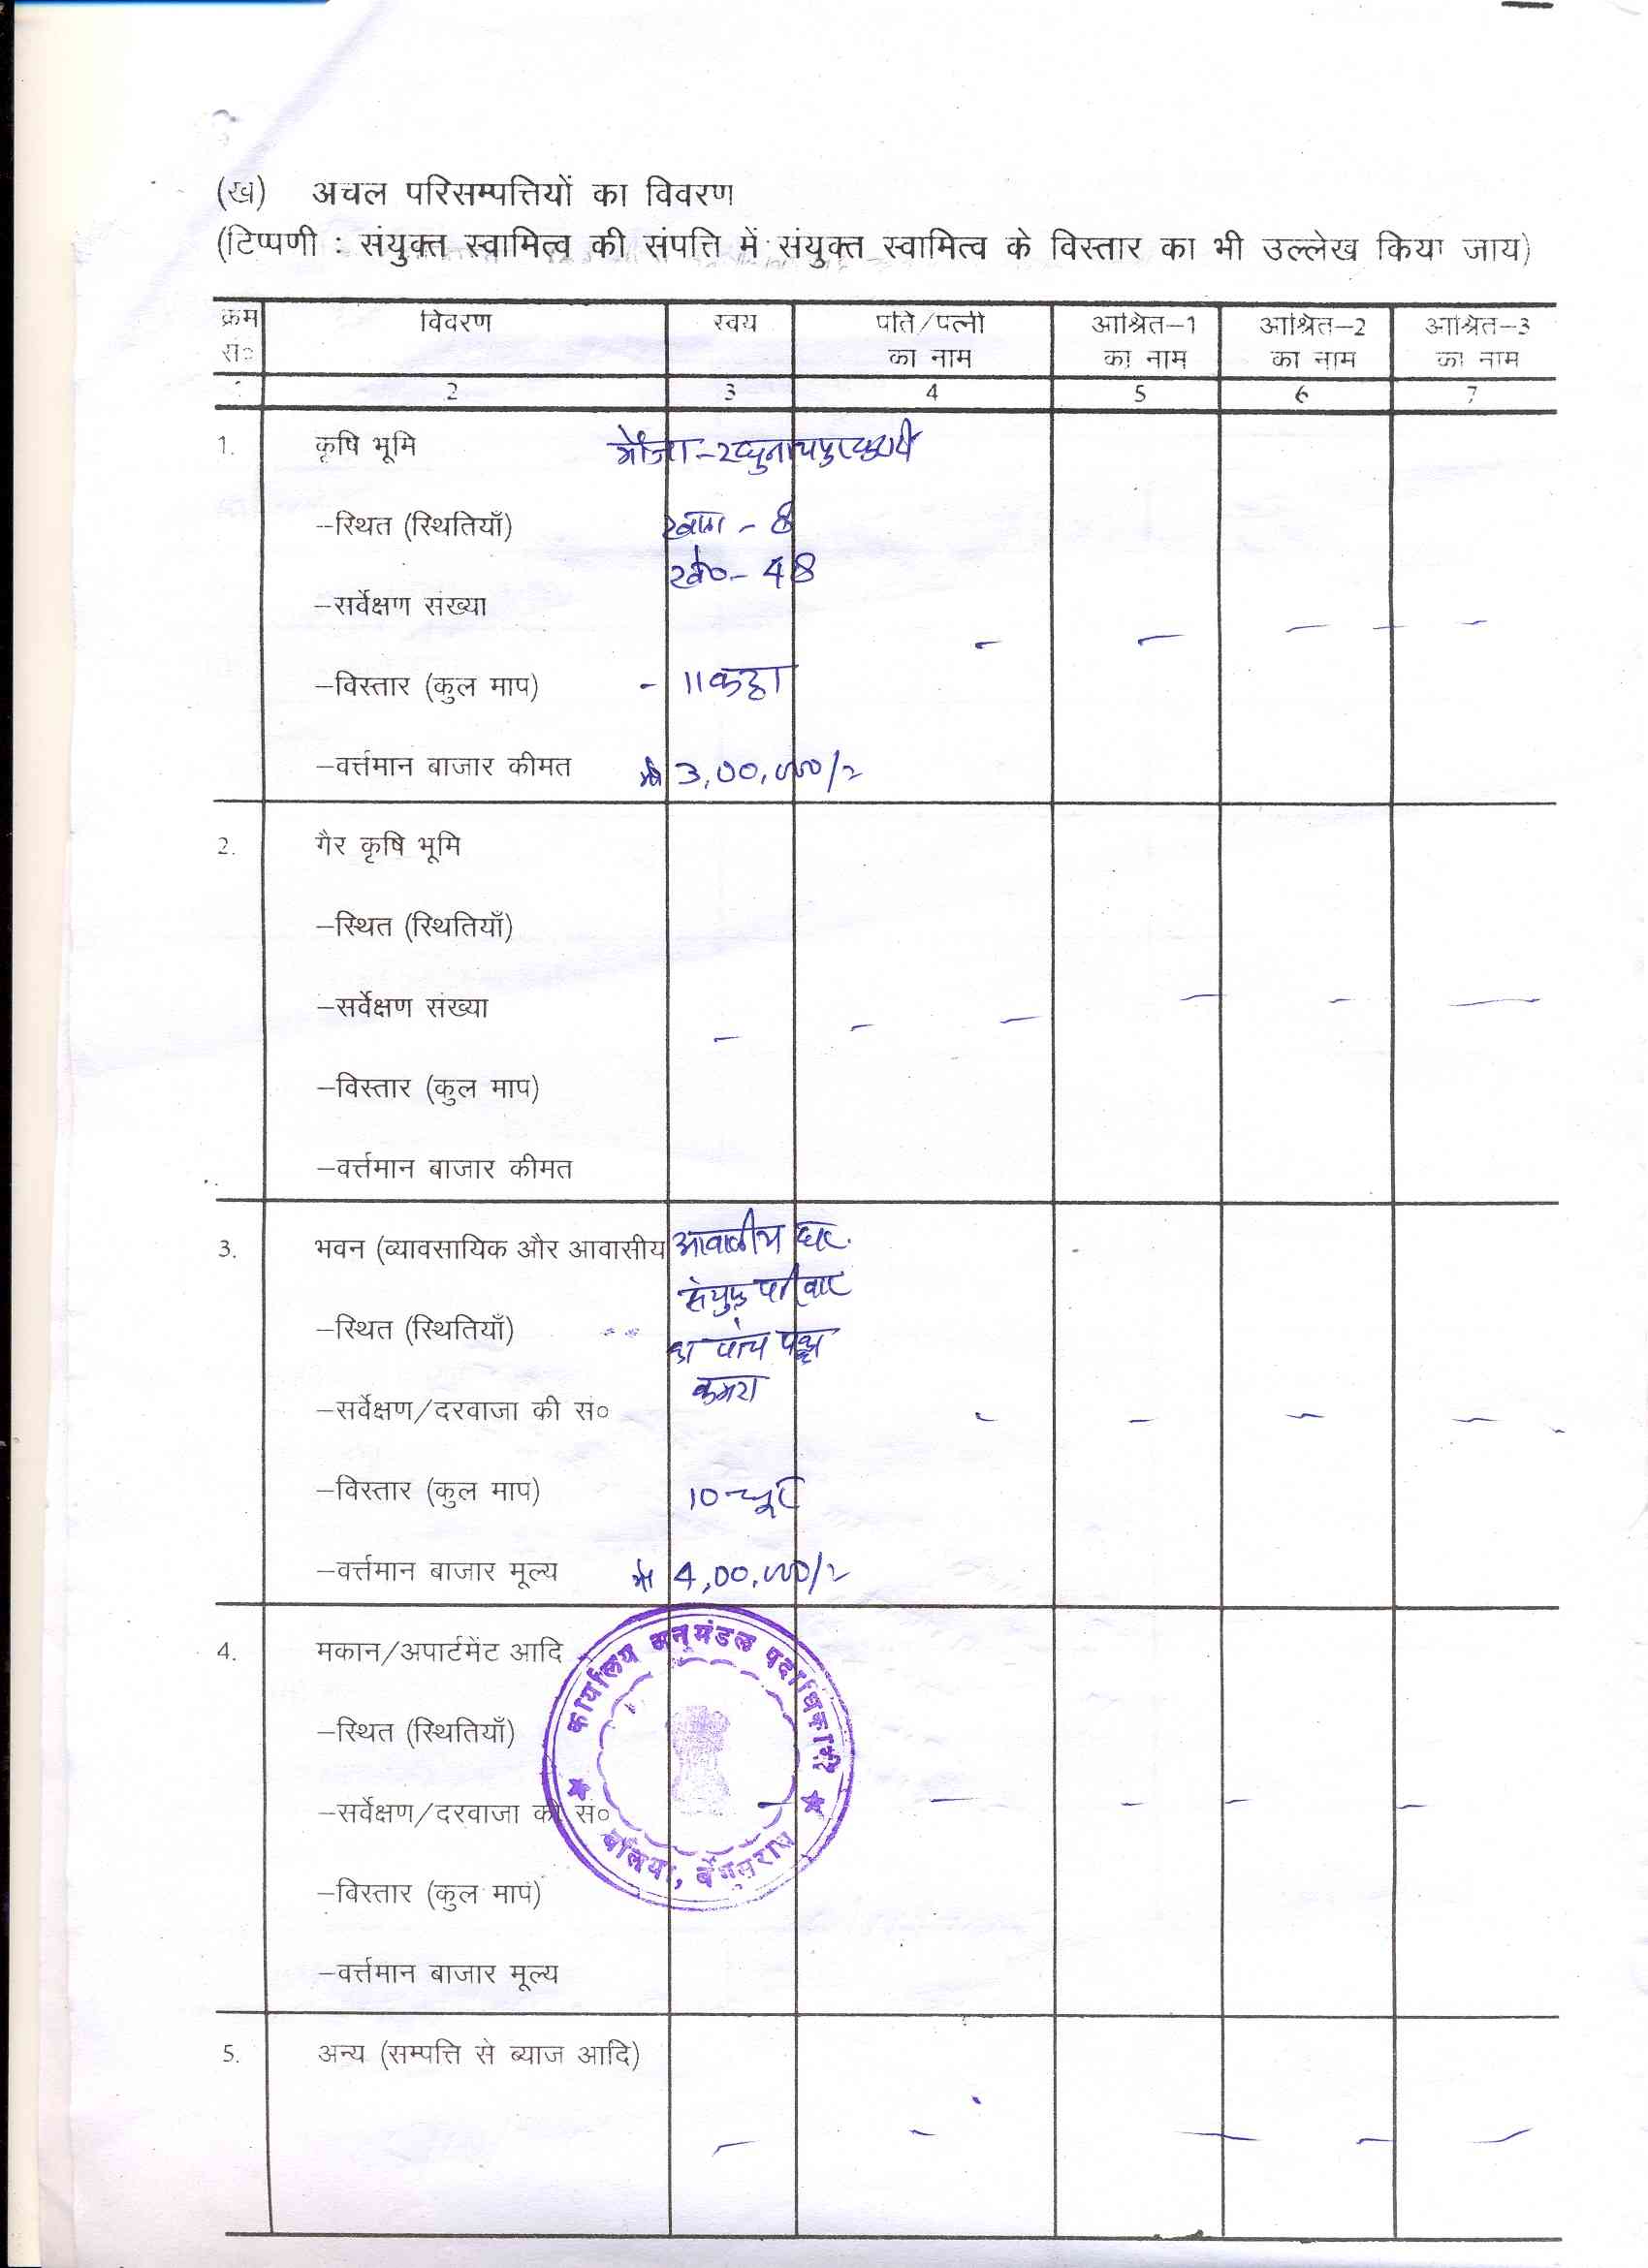 (ख) अचल परिसम्पत्तियों का विवरण
(टिप्पणी : संयुक्त स्वामित्व की संपत्ति में संयुक्त स्वामित्व के विस्तार का भी उल्लेख किया जाय)
क्रम सं० विवरण स्वयं पति/पत्नी का नाम आश्रित–1 का नाम आश्रित–2 का नाम आश्रित–3 का नाम
1 2 3 4 5 6 7
1. कृषि भूमि मौजा -
–स्थित (स्थितियाँ) - 8
48
–सर्वेक्षण संख्या
–विस्तार (कुल माप) - 11 कट्ठा
–वर्त्तमान बाजार कीमत 3,00,000/-
2. गैर कृषि भूमि
–स्थित (स्थितियाँ)
–सर्वेक्षण संख्या
–विस्तार (कुल माप)
–वर्त्तमान बाजार कीमत
3. भवन (व्यावसायिक और आवासीय आवासीय घर
संयुक्त परिवार
–स्थित (स्थितियाँ) पांच
कमरा
–सर्वेक्षण/दरवाजा की सं०
–विस्तार (कुल माप) 10
–वर्त्तमान बाजार मूल्य 4,00,000/-
कार्यालय अनुमंडल पदाधिकारी
4. मकान/अपार्टमेंट आदि
–स्थित (स्थितियाँ)
–सर्वेक्षण/दरवाजा की सं०
बलिया, बेगूसराय
–विस्तार (कुल माप)
–वर्त्तमान बाजार मूल्य
5. अन्य (सम्पत्ति से ब्याज आदि)